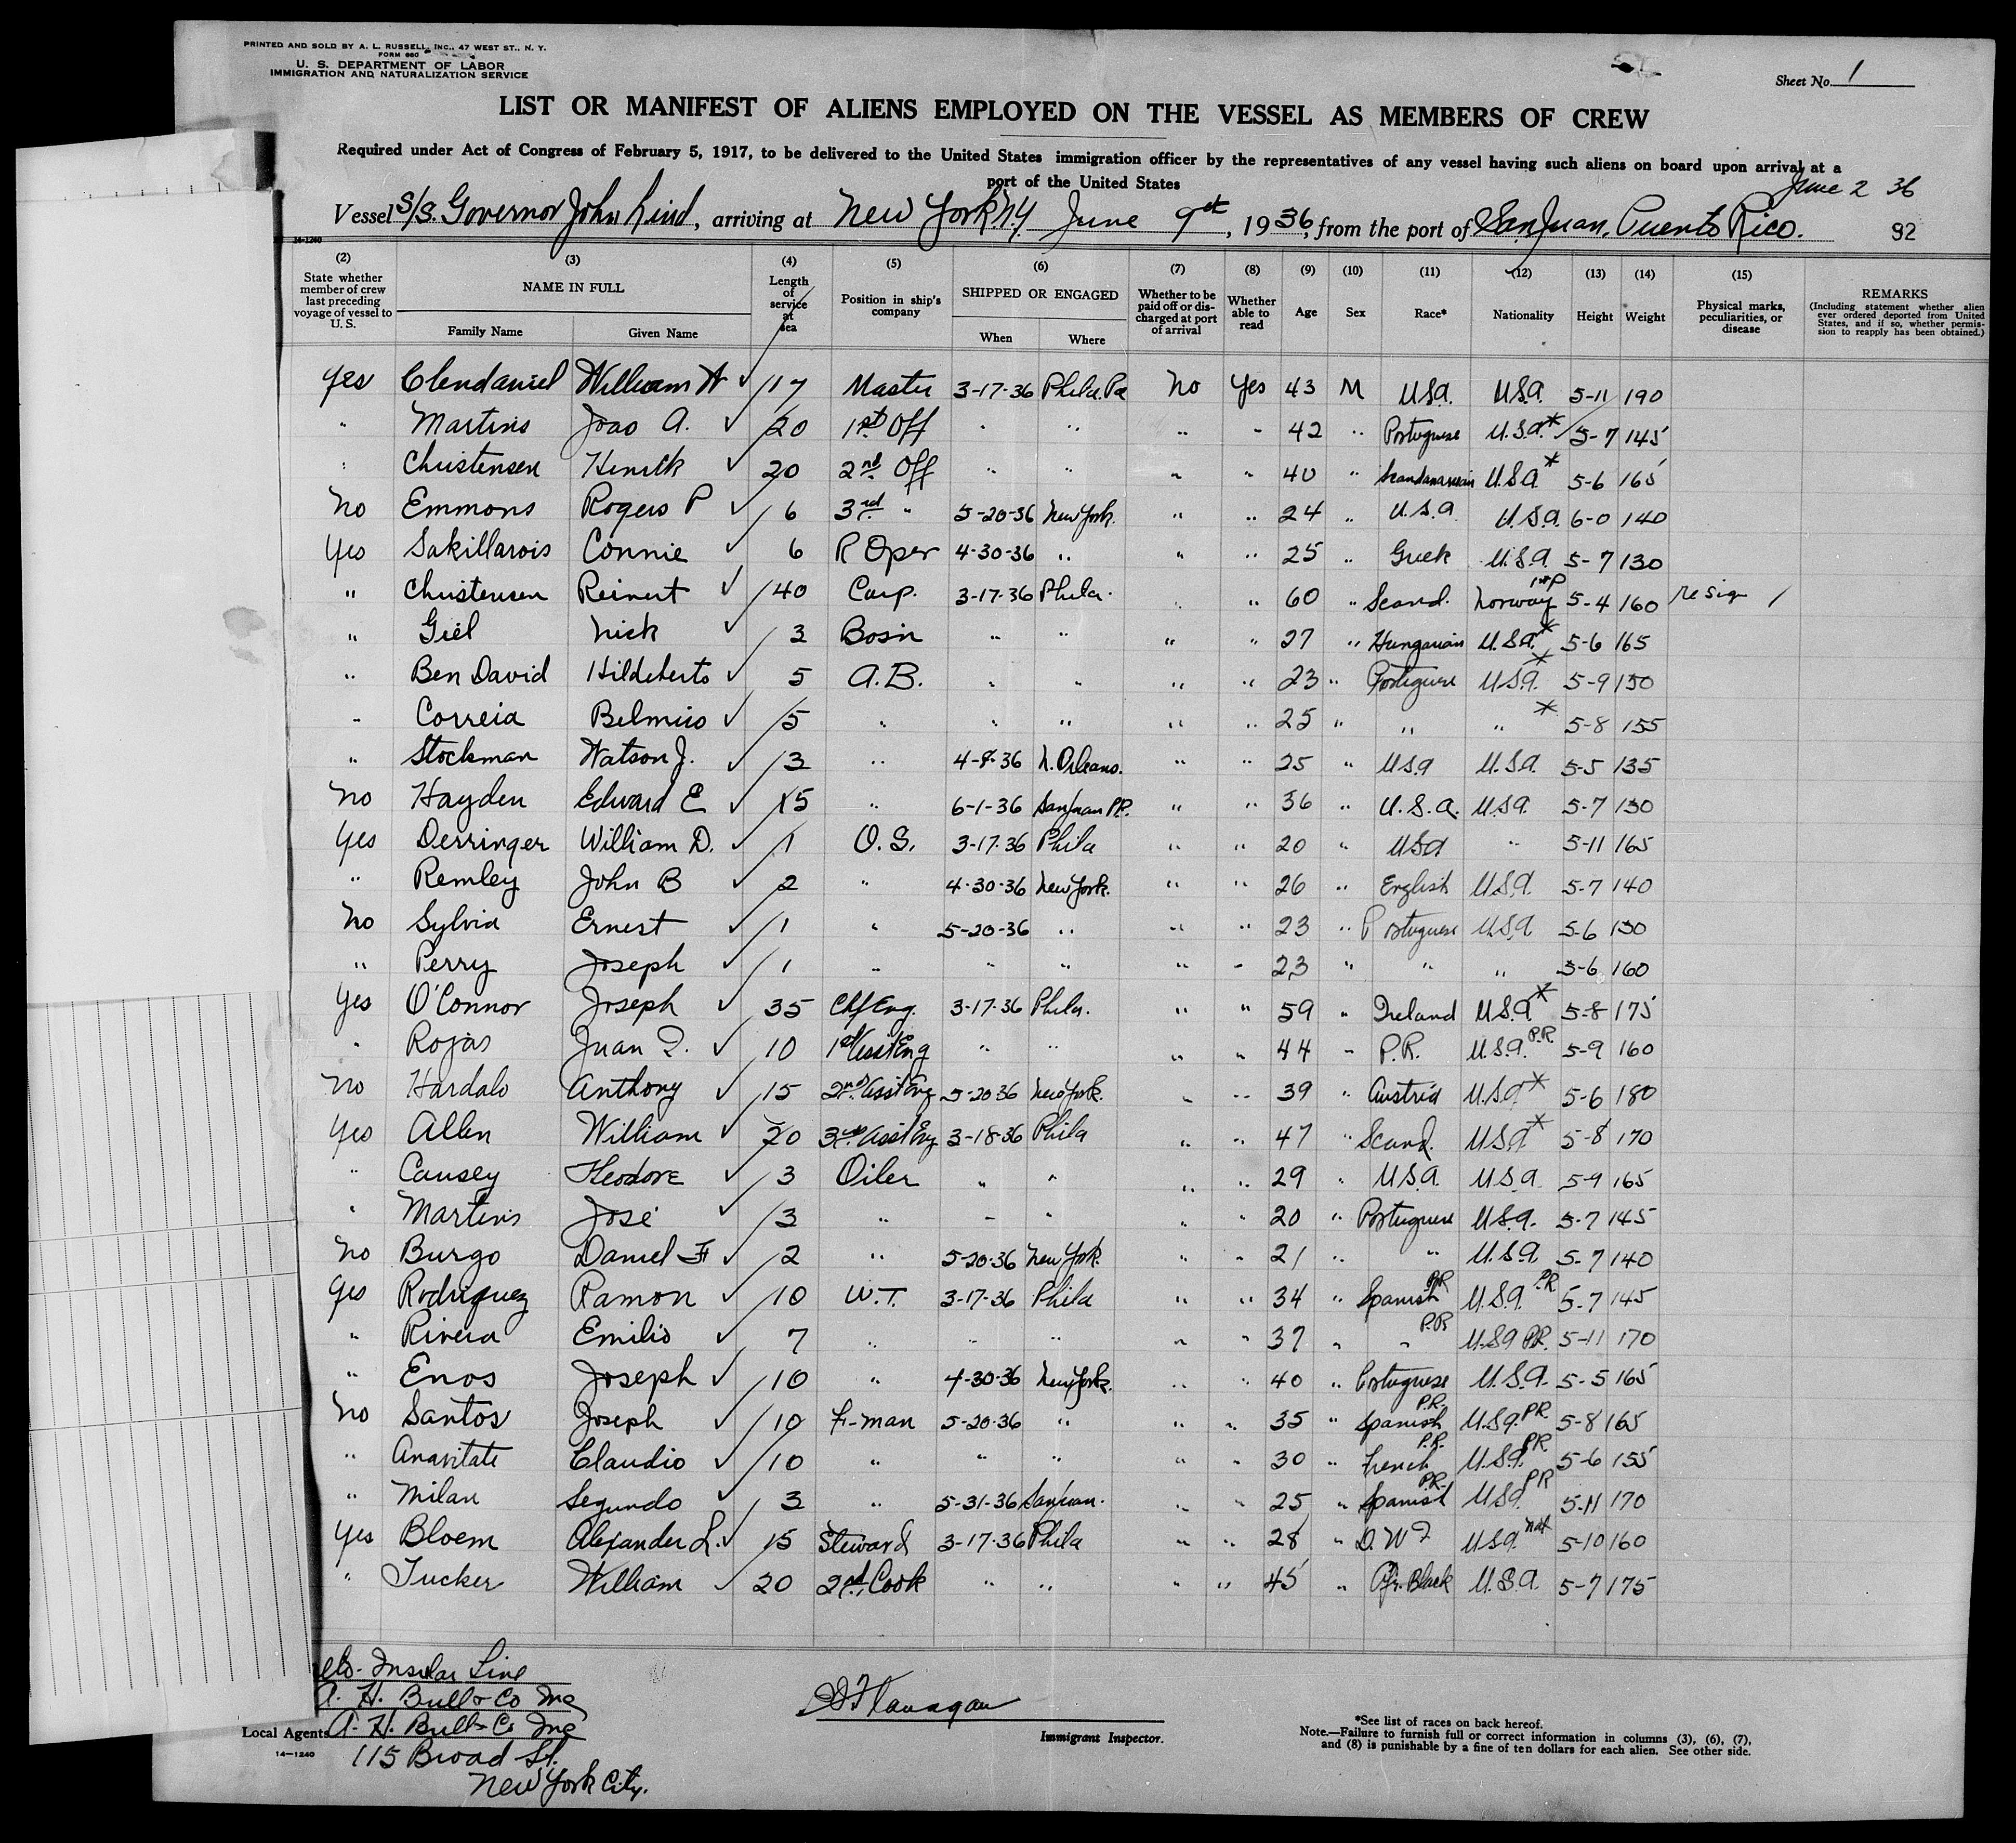 PRINTED AND SOLD BY A. L. RUSSELL, INC., 47 WEST ST., N. Y.
FORM 680
U. S. DEPARTMENT OF LABOR
IMMIGRATION AND NATURALIZATION SERVICE
Sheet No. 1
LIST OR MANIFEST OF ALIENS EMPLOYED ON THE VESSEL AS MEMBERS OF CREW
Required under Act of Congress of February 5, 1917, to be delivered to the United States immigration officer by the representatives of any vessel having such aliens on board upon arrival at a
port of the United States
June 2 36
Vessel S/S. Governor John Lind, arriving at New York NY June 9th, 1936, from the port of San Juan, Puerto Rico. 92
14-1240
(2) (3) (4) (5) (6) (7) (8) (9) (10) (11) (12) (13) (14) (15)
State whether member of crew last preceding voyage of vessel to U. S. NAME IN FULL Family Name Given Name Length of service at sea Position in ship's company SHIPPED OR ENGAGED When Where Whether to be paid off or discharged at port of arrival Whether able to read Age Sex Race* Nationality Height Weight Physical marks, peculiarities, or disease REMARKS (Including statement whether alien ever ordered deported from United States, and if so, whether permission to reapply has been obtained.)
Yes Clendaniel William W ✓ 17 Master 3-17-36 Phila. Pa No Yes 43 M USA. USA. 5-11 190
" Martins Joao A. ✓ 20 1st Off " " " " 42 " Portuguese U.S.A.* 5-7 145
" Christensen Henrik ✓ 20 2nd Off " " " " 40 " Scandanavian U.S.A.* 5-6 165
No Emmons Rogers P ✓ 6 3rd " 5-20-36 New York. " " 24 " U.S.A U.S.A. 6-0 140
Yes Sakillarois Connie ✓ 6 R Oper 4-30-36 " " " 25 " Greek U.S.A. 5-7 130
" Christensen Reinert ✓ 40 Carp. 3-17-36 Phila. " " 60 " Scand. Norway 5-4 160 re sign /
" Giel Nick ✓ 3 Bosn " " " " 27 " Hungarian U.S.A.* 5-6 165
" Ben David Hildeberto ✓ 5 A.B. " " " " 23 " Portuguese U.S.A.* 5-9 150
" Correia Belmiro ✓ 5 " " " " " 25 " " " * 5-8 155
" Stockman Watson J. ✓ 3 " 4-9-36 N. Orleans. " " 25 " USA U.S.A. 5-5 135
No Hayden Edward E ✓ 15 " 6-1-36 San Juan P.R. " " 36 " U.S.A. USA. 5-7 130
Yes Derringer William D. ✓ 1 O.S. 3-17-36 Phila " " 20 " USA " 5-11 165
" Remley John B ✓ 2 " 4-30-36 New York. " " 26 " English U.S.A. 5-7 140
No Sylvia Ernest ✓ 1 " 5-20-36 " " " 23 " Portuguese U.S.A 5-6 130
" Perry Joseph ✓ 1 " " " " " 23 " " " 5-6 160
Yes O'Connor Joseph ✓ 35 Chf Eng. 3-17-36 Phila. " " 59 " Ireland U.S.A.* 5-8 175
" Rojas Juan Q. ✓ 10 1st Asst Eng " " " " 44 " P.R. U.S.A. P.R. 5-9 160
No Hardalo Anthony ✓ 15 2nd Asst Eng 5-20-36 New York. " " 39 " Austria U.S.A* 5-6 180
Yes Allen William ✓ 20 3rd Asst Eng 3-18-36 Phila " " 47 " Scand. USA* 5-8 170
" Causey Theodore ✓ 3 Oiler " " " " 29 " U.S.A. U.S.A. 5-9 165
" Martins José ✓ 3 " " " " " 20 " Portuguese U.S.A. 5-7 145
No Burgo Daniel F ✓ 2 " 5-20-36 New York. " " 21 " " U.S.A. 5-7 140
Yes Rodriguez Ramon ✓ 10 W.T. 3-17-36 Phila " " 34 " Spanish P.R. U.S.A. P.R 5-7 145
" Rivera Emilio ✓ 7 " " " " " 37 " " P.R U.S.A P.R. 5-11 170
" Enos Joseph ✓ 10 " 4-30-36 New York. " " 40 " Portuguese U.S.A. 5-5 165
No Santos Joseph ✓ 10 F-man 5-20-36 " " " 35 " Spanish P.R. U.S.A. P.R. 5-8 165
" Anavitate Claudio ✓ 10 " " " " " 30 " French P.R. U.S.A. P.R. 5-6 155
" Milan Segundo ✓ 3 " 5-31-36 San Juan. " " 25 " Spanish P.R. USA. PR 5-11 170
Yes Bloem Alexander L. ✓ 15 Steward 3-17-36 Phila " " 28 " D.W.I USA. nat 5-10 160
" Tucker William ✓ 20 2nd Cook " " " " 45 " Afr. Black U.S.A. 5-7 175
Insular Line
A. H. Bull & Co Inc
Local Agents A. H. Bull & Co Inc
14-1240
115 Broad St.
New York City.
Flanagan
Immigrant Inspector.
*See list of races on back hereof.
Note.—Failure to furnish full or correct information in columns (3), (6), (7),
and (8) is punishable by a fine of ten dollars for each alien. See other side.